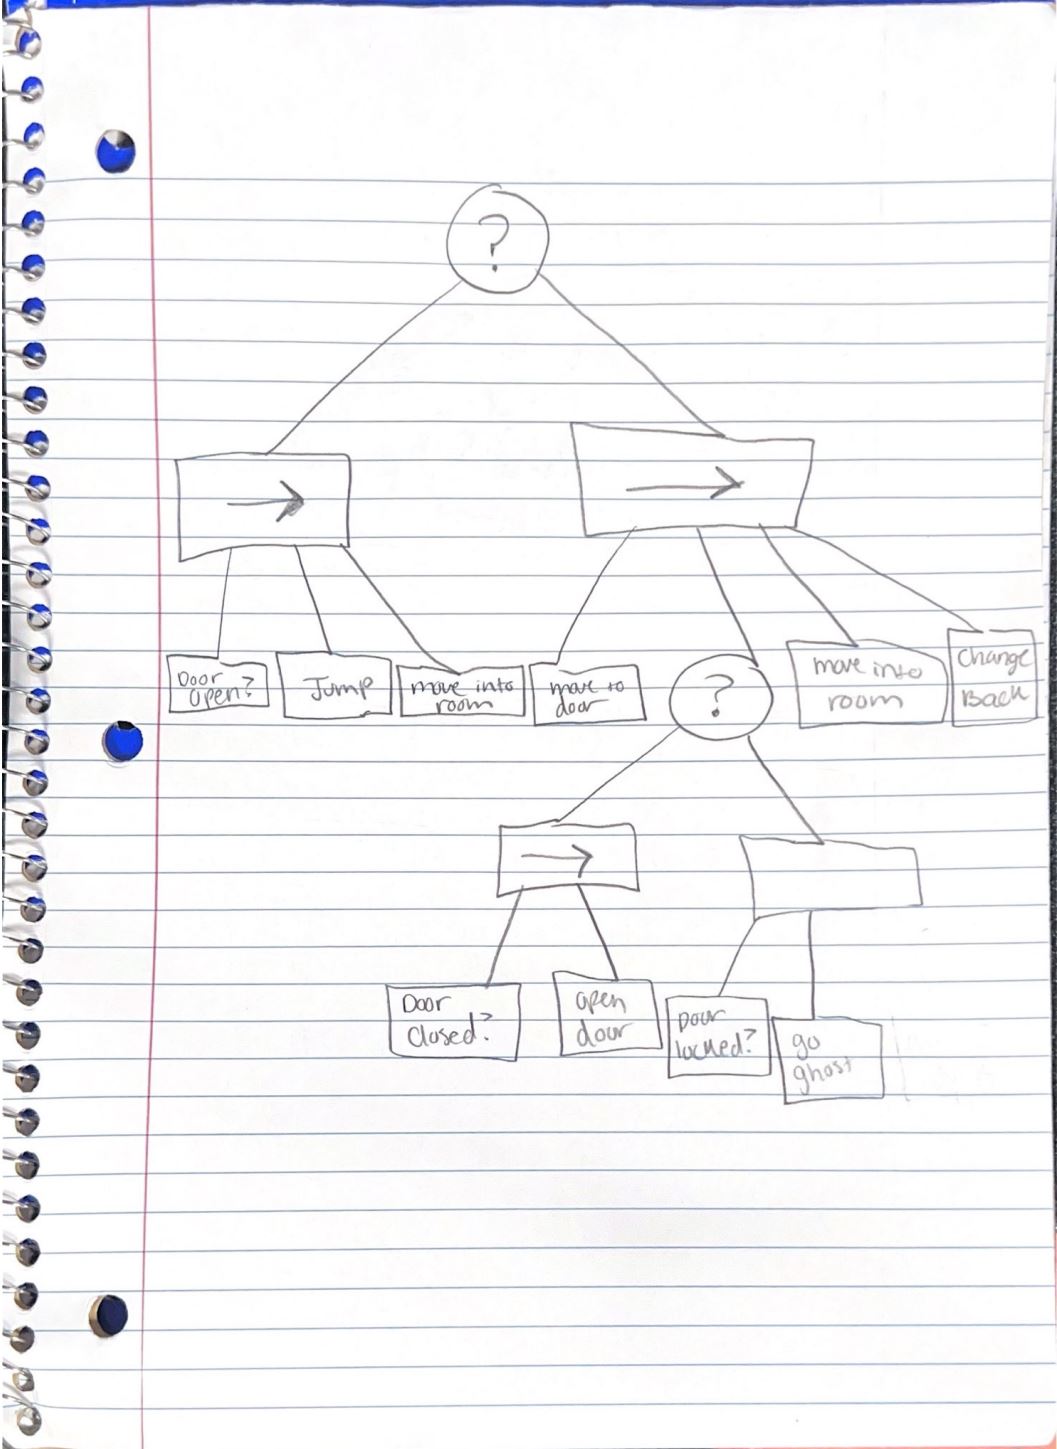 ?
→
→
Door
open?
Jump
move into
room
move to
door
?
move into
room
Change
Back
→
Door
Closed?
open
door
Door
locked?
go
ghost